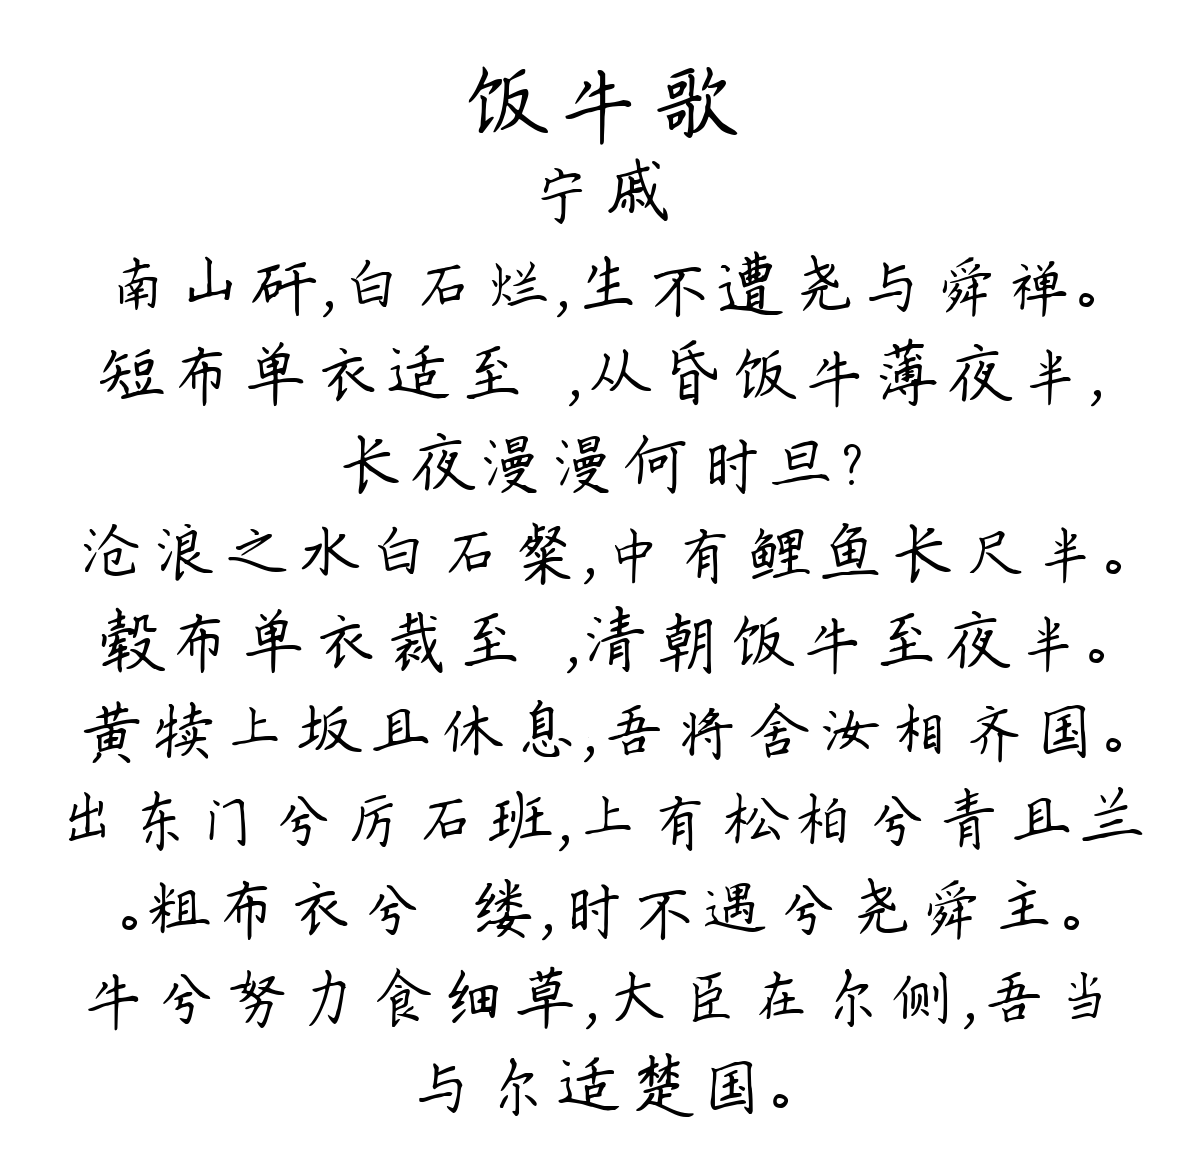 饭牛歌
宁戚
南山矸,白石烂,生不遭尧与舜禅。
短布单衣适至 ,从昏饭牛薄夜半,
长夜漫漫何时旦?
沧浪之水白石粲,中有鲤鱼长尺半。
毂布单衣裁至 ,清朝饭牛至夜半。
黄犊上坂且休息,吾将舍汝相齐国。
出东门兮厉石班,上有松柏兮青且兰
。粗布衣兮 缕,时不遇兮尧舜主。
牛兮努力食细草,大臣在尔侧,吾当
与尔适楚国。